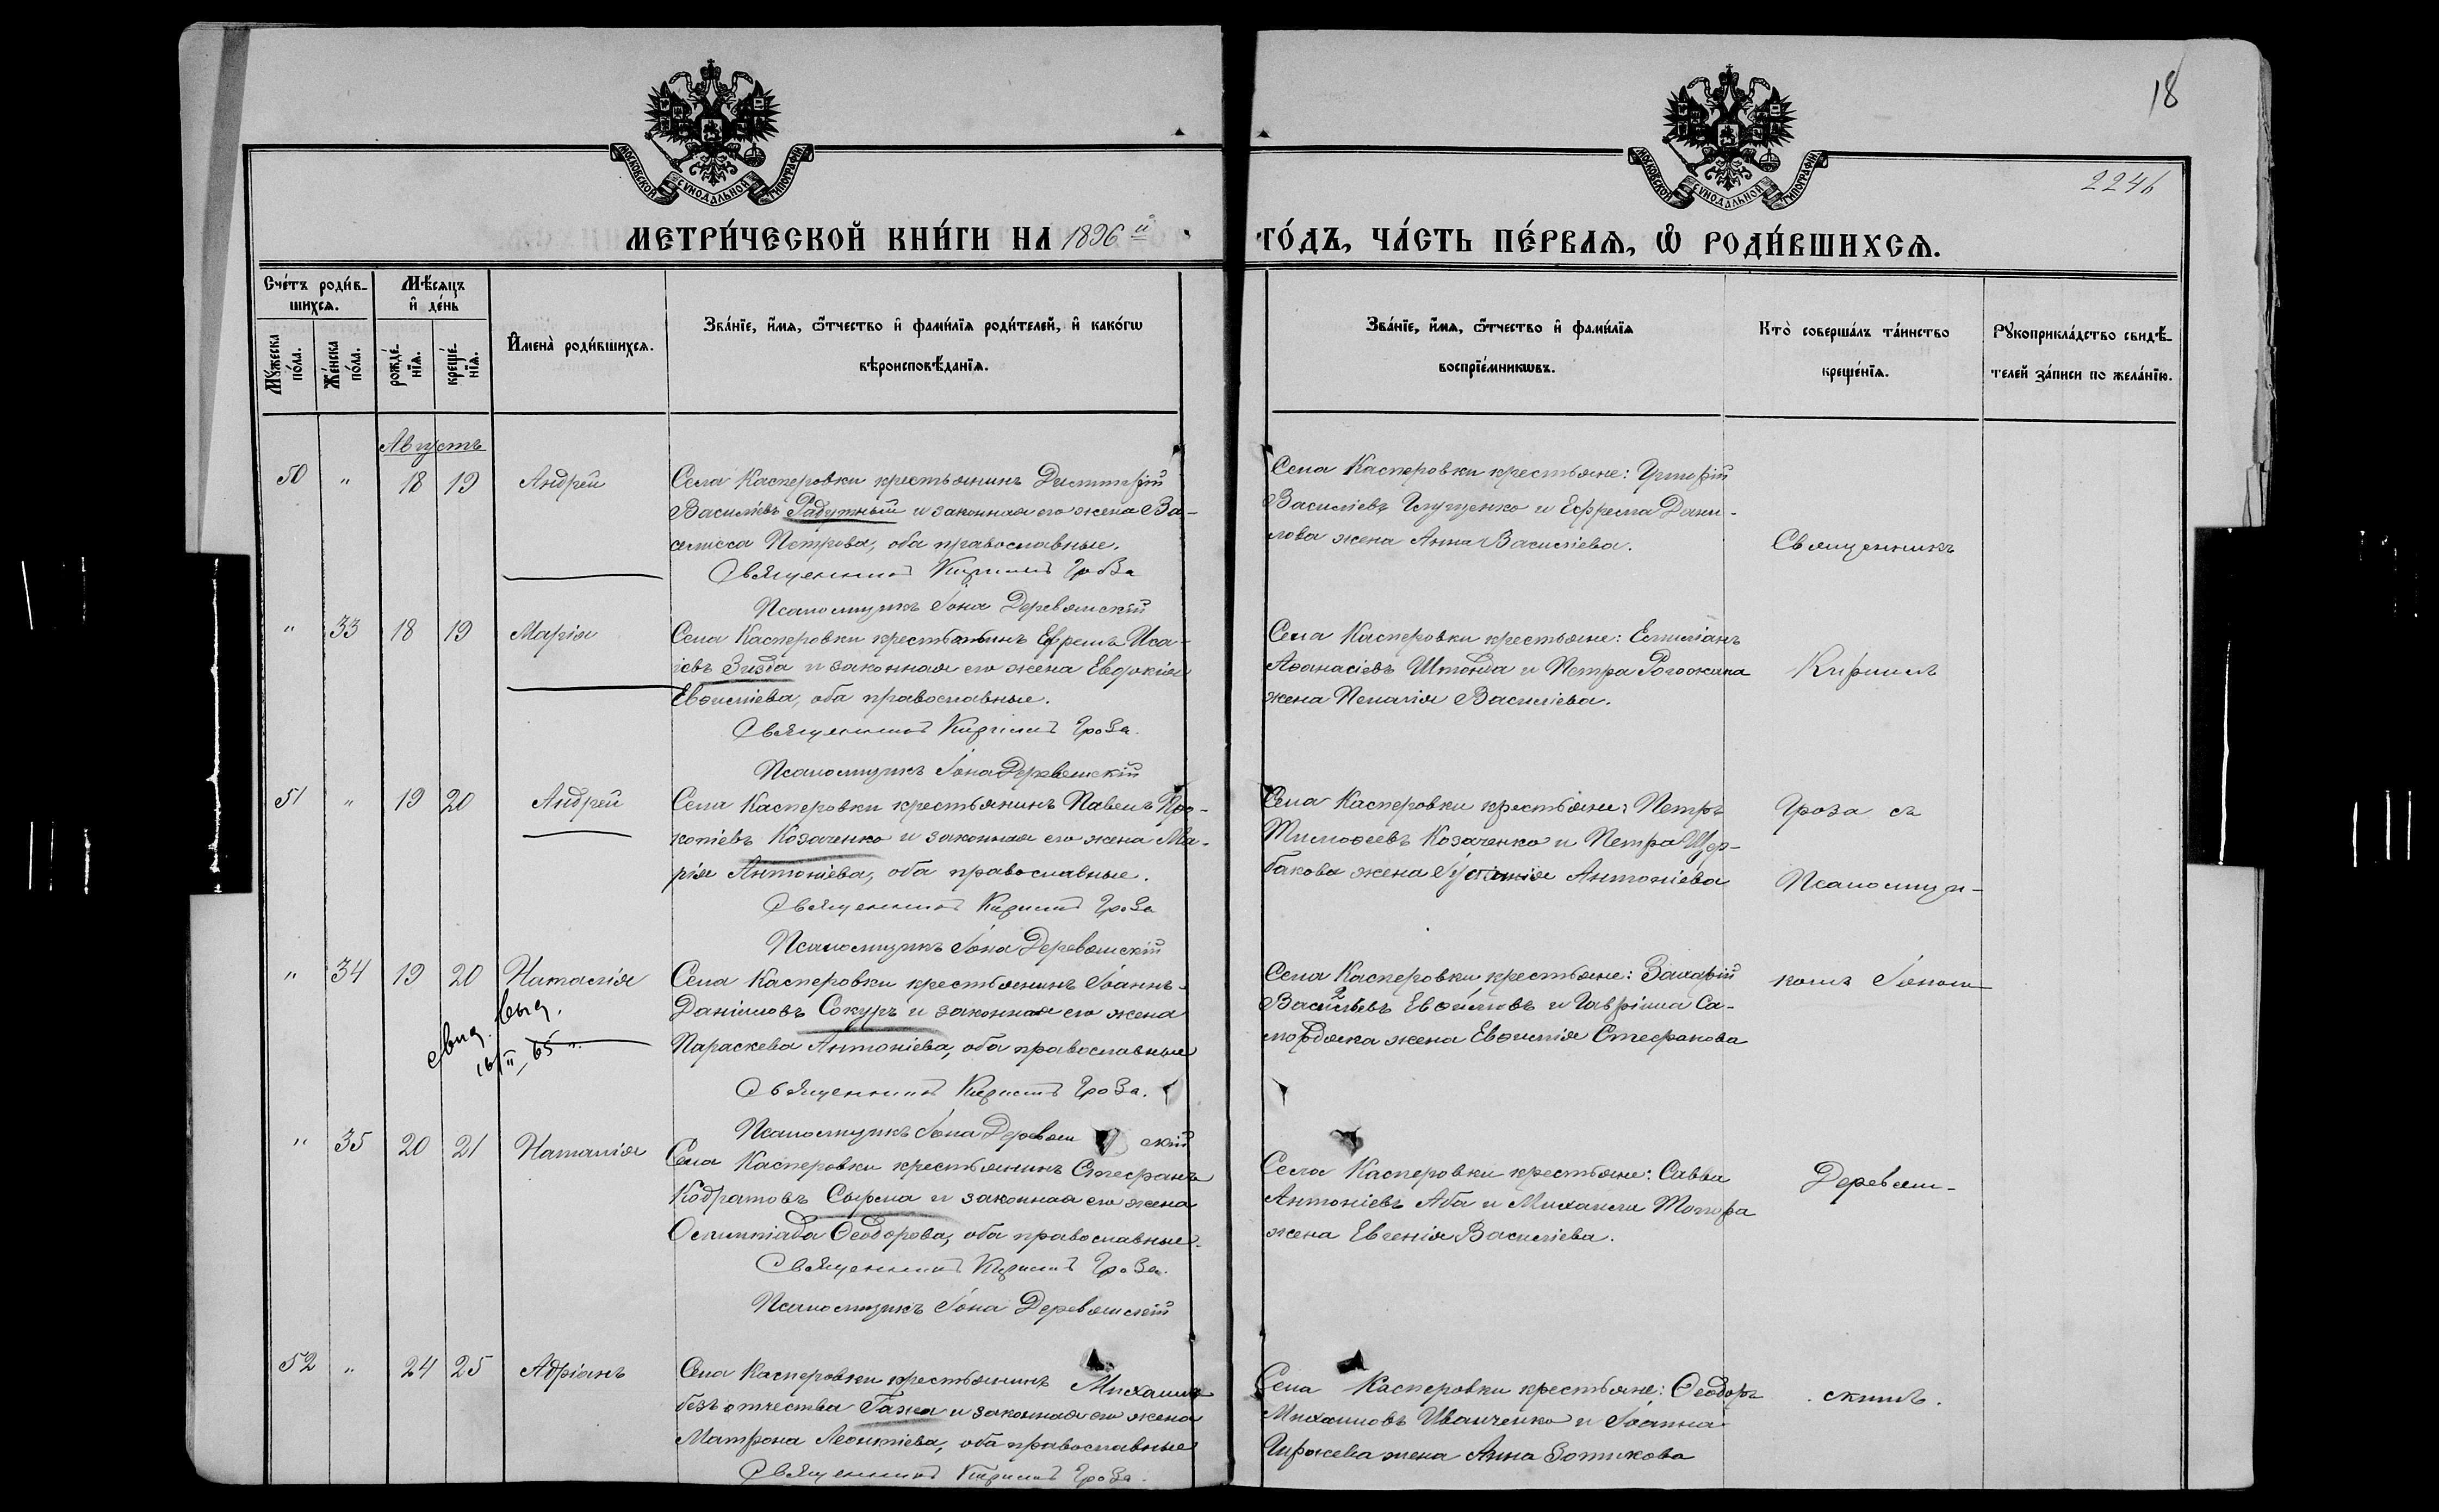 18
МОСКОВСКОЙ СѴНОДАЛЬНОЙ ТИПОГРАФІИ
МОСКОВСКОЙ СѴНОДАЛЬНОЙ ТИПОГРАФІИ
МЕТРИ́ЧЕСКОЙ КНИ́ГИ НА 1896 й
ГО́ДЪ, ЧА́СТЬ ПЕ́РВАѦ, Ѡ҆ РОДИ́ВШИХСѦ.
Сче́тъ роди́в-
шихсѧ.
Мꙋ́жеска по́ла.
Же́нска по́ла.
Мѣ́сѧцъ
и҆ де́нь
рожде́-нїѧ.
креще́-нїѧ.
И҆мена̀ роди́вшихсѧ.
Зва́нїе, и҆́мѧ, ѻ҆́тчество и҆ фами́лїѧ роди́телей, и҆ како́гѡ
вѣроисповѣ́данїѧ.
Зва́нїе, и҆́мѧ, ѻ҆́тчество и҆ фами́лїѧ
воспрїе́мникѡвъ.
Кто̀ соверша́лъ та́инство
креще́нїѧ.
Рꙋкоприкла́дство свидѣ́-
телей за́писи по жела́нїю.
Августъ
50 " 18 19 Андрей
Села Касперовки крестьянинъ Димитрій
Василіевъ Радутный и законная его жена Ва-
силиса Петрова, оба православные.
Священникъ Кириллъ Гроза
Псаломщикъ Іона Деревянскій
Села Касперовки крестьяне:
Василіевъ и Ефрема Дани-
лова жена Анна Василіева.
Священникъ
" 33 18 19 Марія
Села Касперовки крестьянинъ Ефремъ Иса-
іевъ Зизда и законная его жена Евдокія
Евѳиміева, оба православные.
Священникъ Кириллъ Гроза.
Псаломщикъ Іона Деревянскій
Села Касперовки крестьяне: Емиліанъ
Аѳанасіевъ Штонда и Петра
жена Пелагія Василіева.
Кирилъ
51 " 19 20 Андрей
Села Касперовки крестьянинъ Павелъ Про-
копіевъ Козаченко и законная его жена Ма-
рія Антоніева, оба православные.
Священникъ Кириллъ Гроза
Псаломщикъ Іона Деревянскій
Села Касперовки крестьяне: Петръ
Тимоѳеевъ Козаченко и Петра Щер-
бакова жена Антоніева
Гроза съ
Псаломщи-
" 34 19 20 Наталія
свид. выд.
16/II 65 г.
Села Касперовки крестьянинъ Іоаннъ
Даніиловъ Сокуръ и законная его жена
Параскева Антоніева, оба православные
Священникъ Кириллъ Гроза.
Псаломщикъ Іона Деревянскій
Села Касперовки крестьяне: Захарій
Васильевъ Евѳимовъ и Гавріила Са-
жена Евѳимія Стефанова
комъ Іоною
" 35 20 21 Наталія
Села Касперовки крестьянинъ Стефанъ
Кодратовъ Сырма и законная его жена
Олимпіада Ѳеодорова, оба православные.
Священникъ Кириллъ Гроза.
Псаломщикъ Іона Деревянскій
Села Касперовки крестьяне: Савва
Антоніевъ Аба и Михаила
жена Евгенія Василіева.
Деревян-
52 " 24 25 Адріанъ
Села Касперовки крестьянинъ Михаилъ
безъ отчества Гажа и законная его жена
Матрона Леонтіева, оба православные
Священникъ Кириллъ Гроза.
Села Касперовки крестьяне: Ѳеодоръ
Михаиловъ Иванченко и Іоанна
жена Анна Зотикова
скимъ.